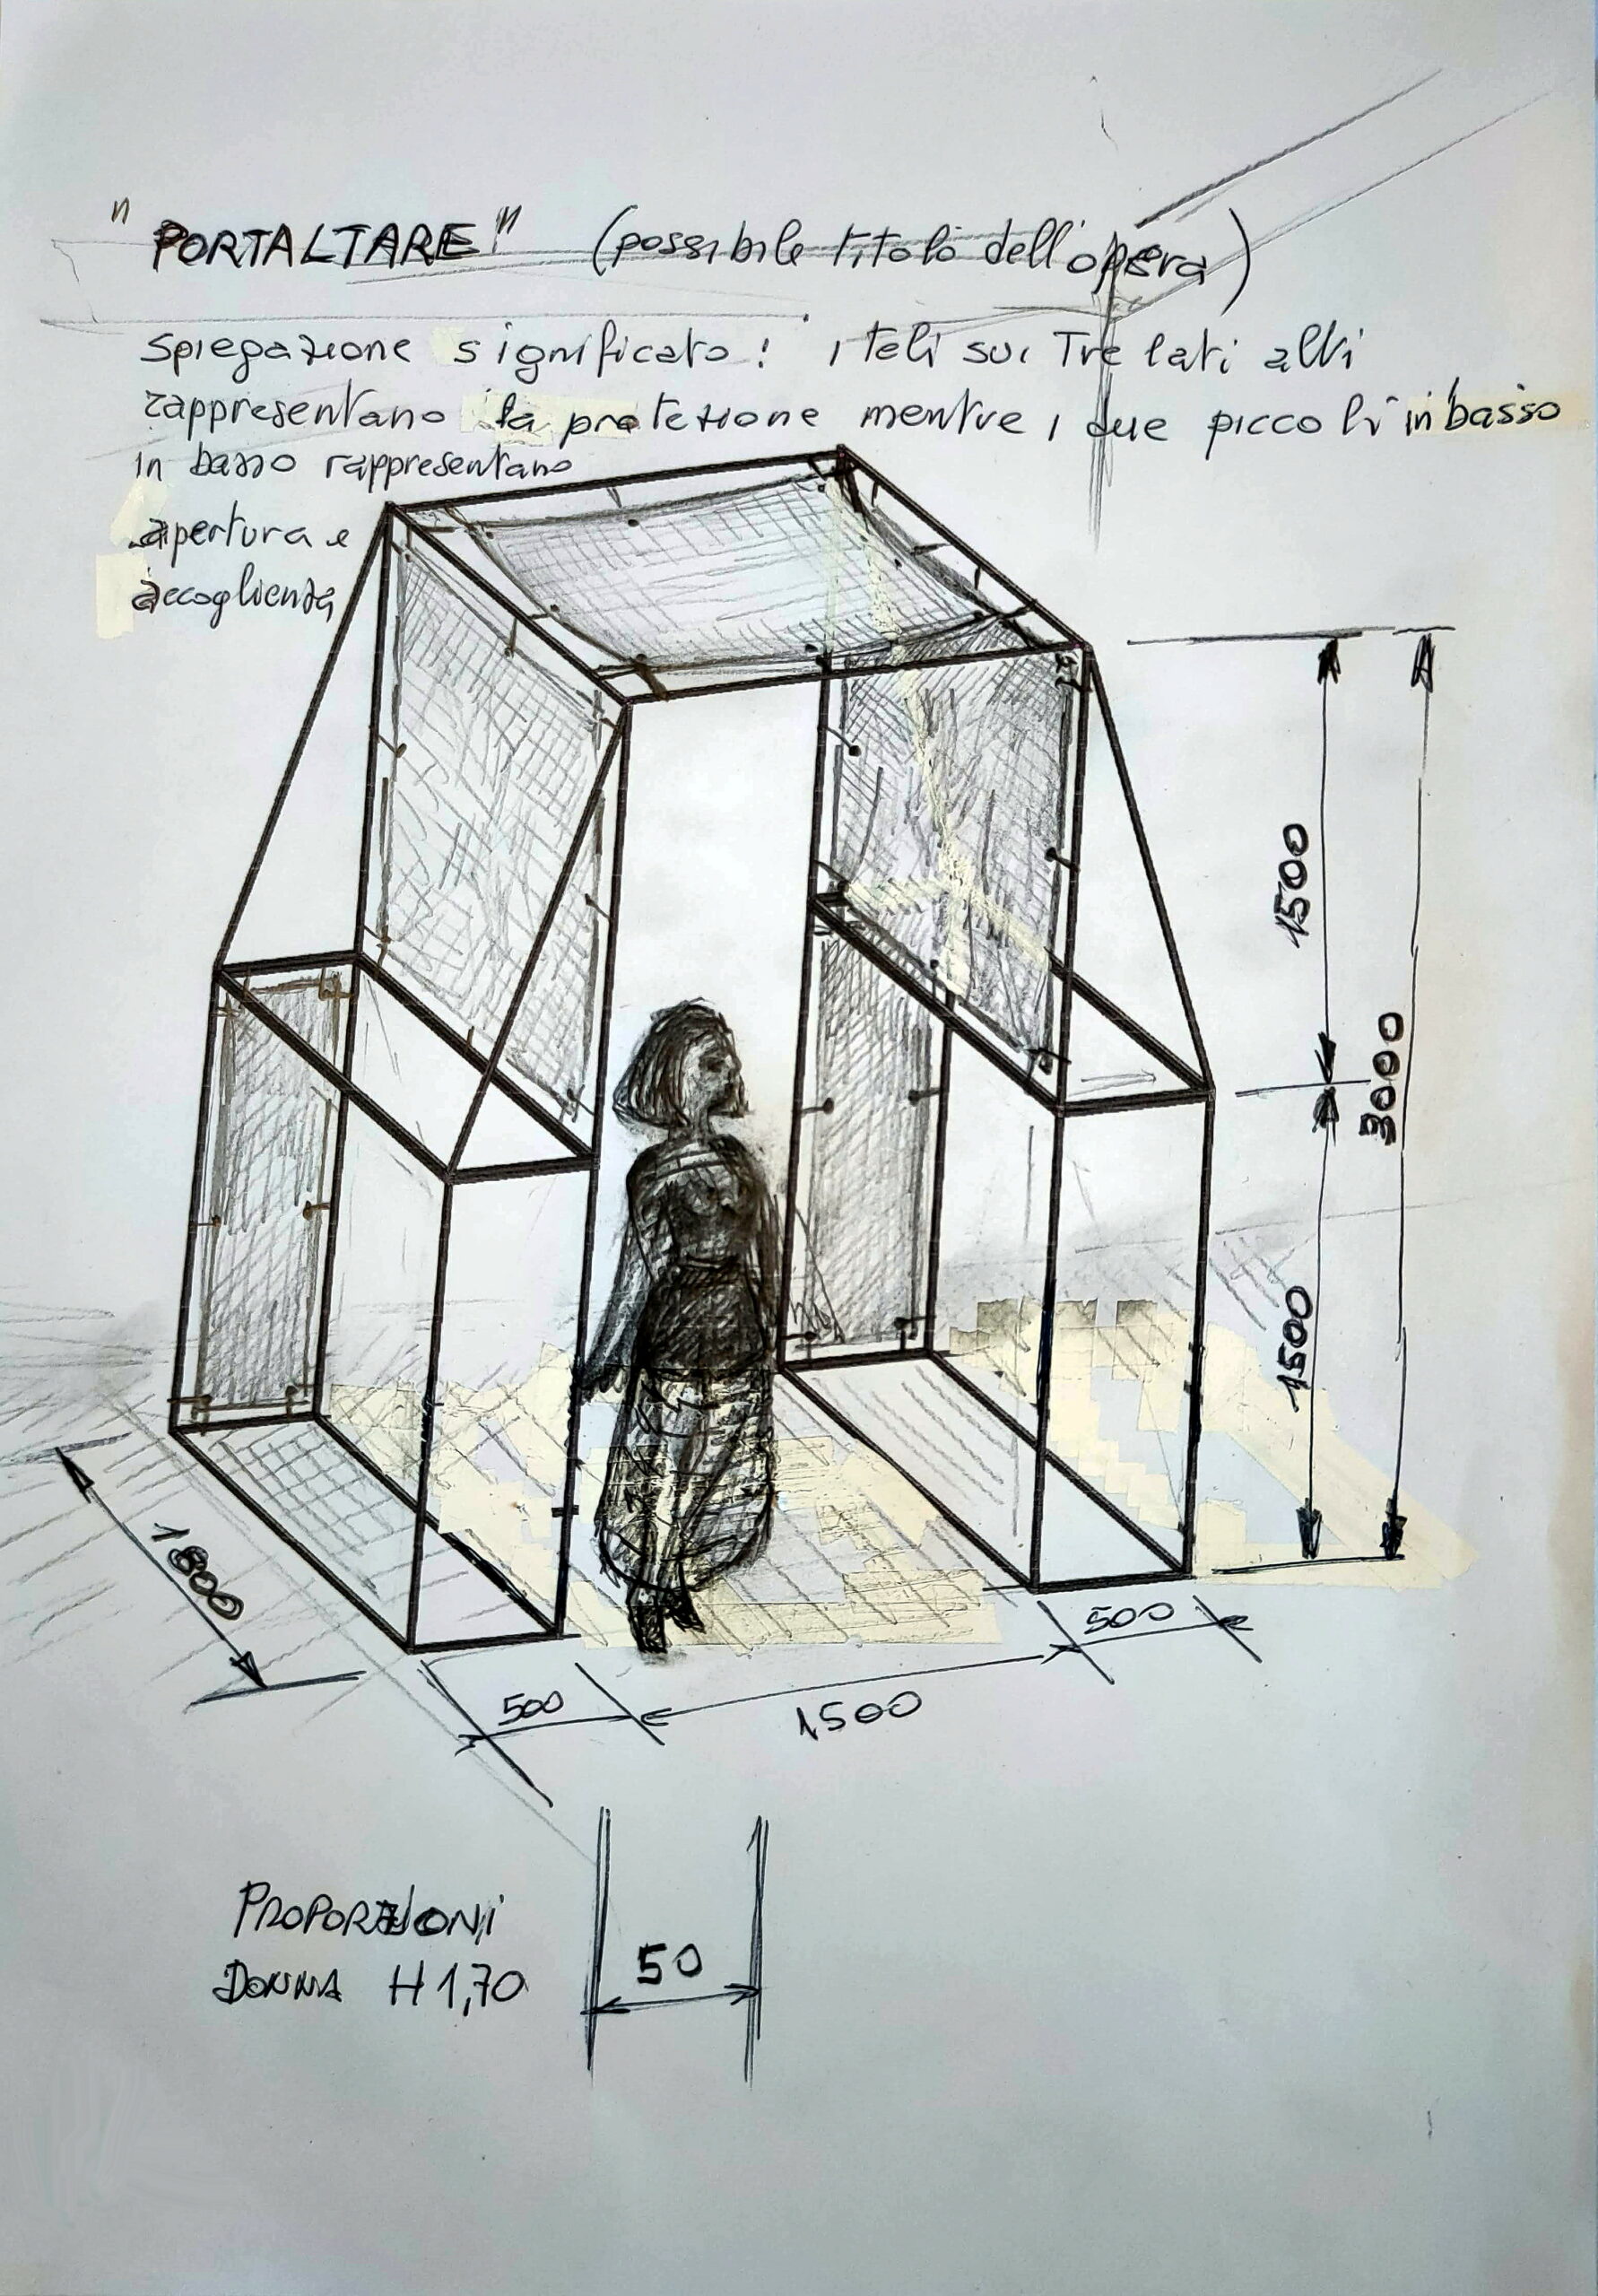 "PORTALTARE" (possibile titolo dell'opera)
spiegazione significato: i teli sui Tre lati alti
rappresentano la protezione mentre i due piccoli in basso
in basso rappresentano
apertura e
accoglienza
1500
3000
1500
1800
500
500
1500
PROPORZIONI
DONNA H 1,70
50